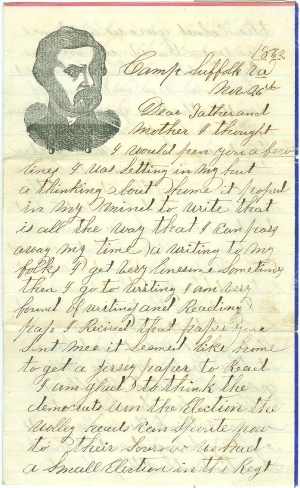 1862
Camp Suffolk Va
Nov 26th
Dear Father and
Mother I thought
I would pen you a few
lines I was setting in my hut
a thinking about home it poped
in my mind to write that
is all the way that I can pass
away my time a writing to my
folks I get very lonesome sometimes
then I go to writing I am very
found of writing and Reading
pap I Recived that paper you
sent mee it seemed like home
to get a jersey paper to Read
I am glad to think the
democats won the Election the
wolley heads can spute now
to their sorrow we had
a small Election in the Regt